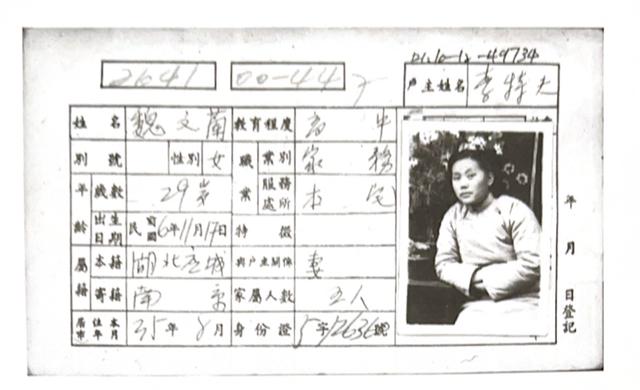 01.10-12-49734
2641 00-44 戶主姓名 李特夫
姓名 魏文蘭 教育程度 高中
別號 性別 女 職業 業別 家務
年齡 歲數 29岁 服務處所 本宅
出生日期 民國6年11月17日 特徵
屬籍 本籍 湖北應城 與戶主關係 妻
寄籍 南京 家屬人數 五人
居住本市年月 35年8月 身份證 5字12636號
年月日登記